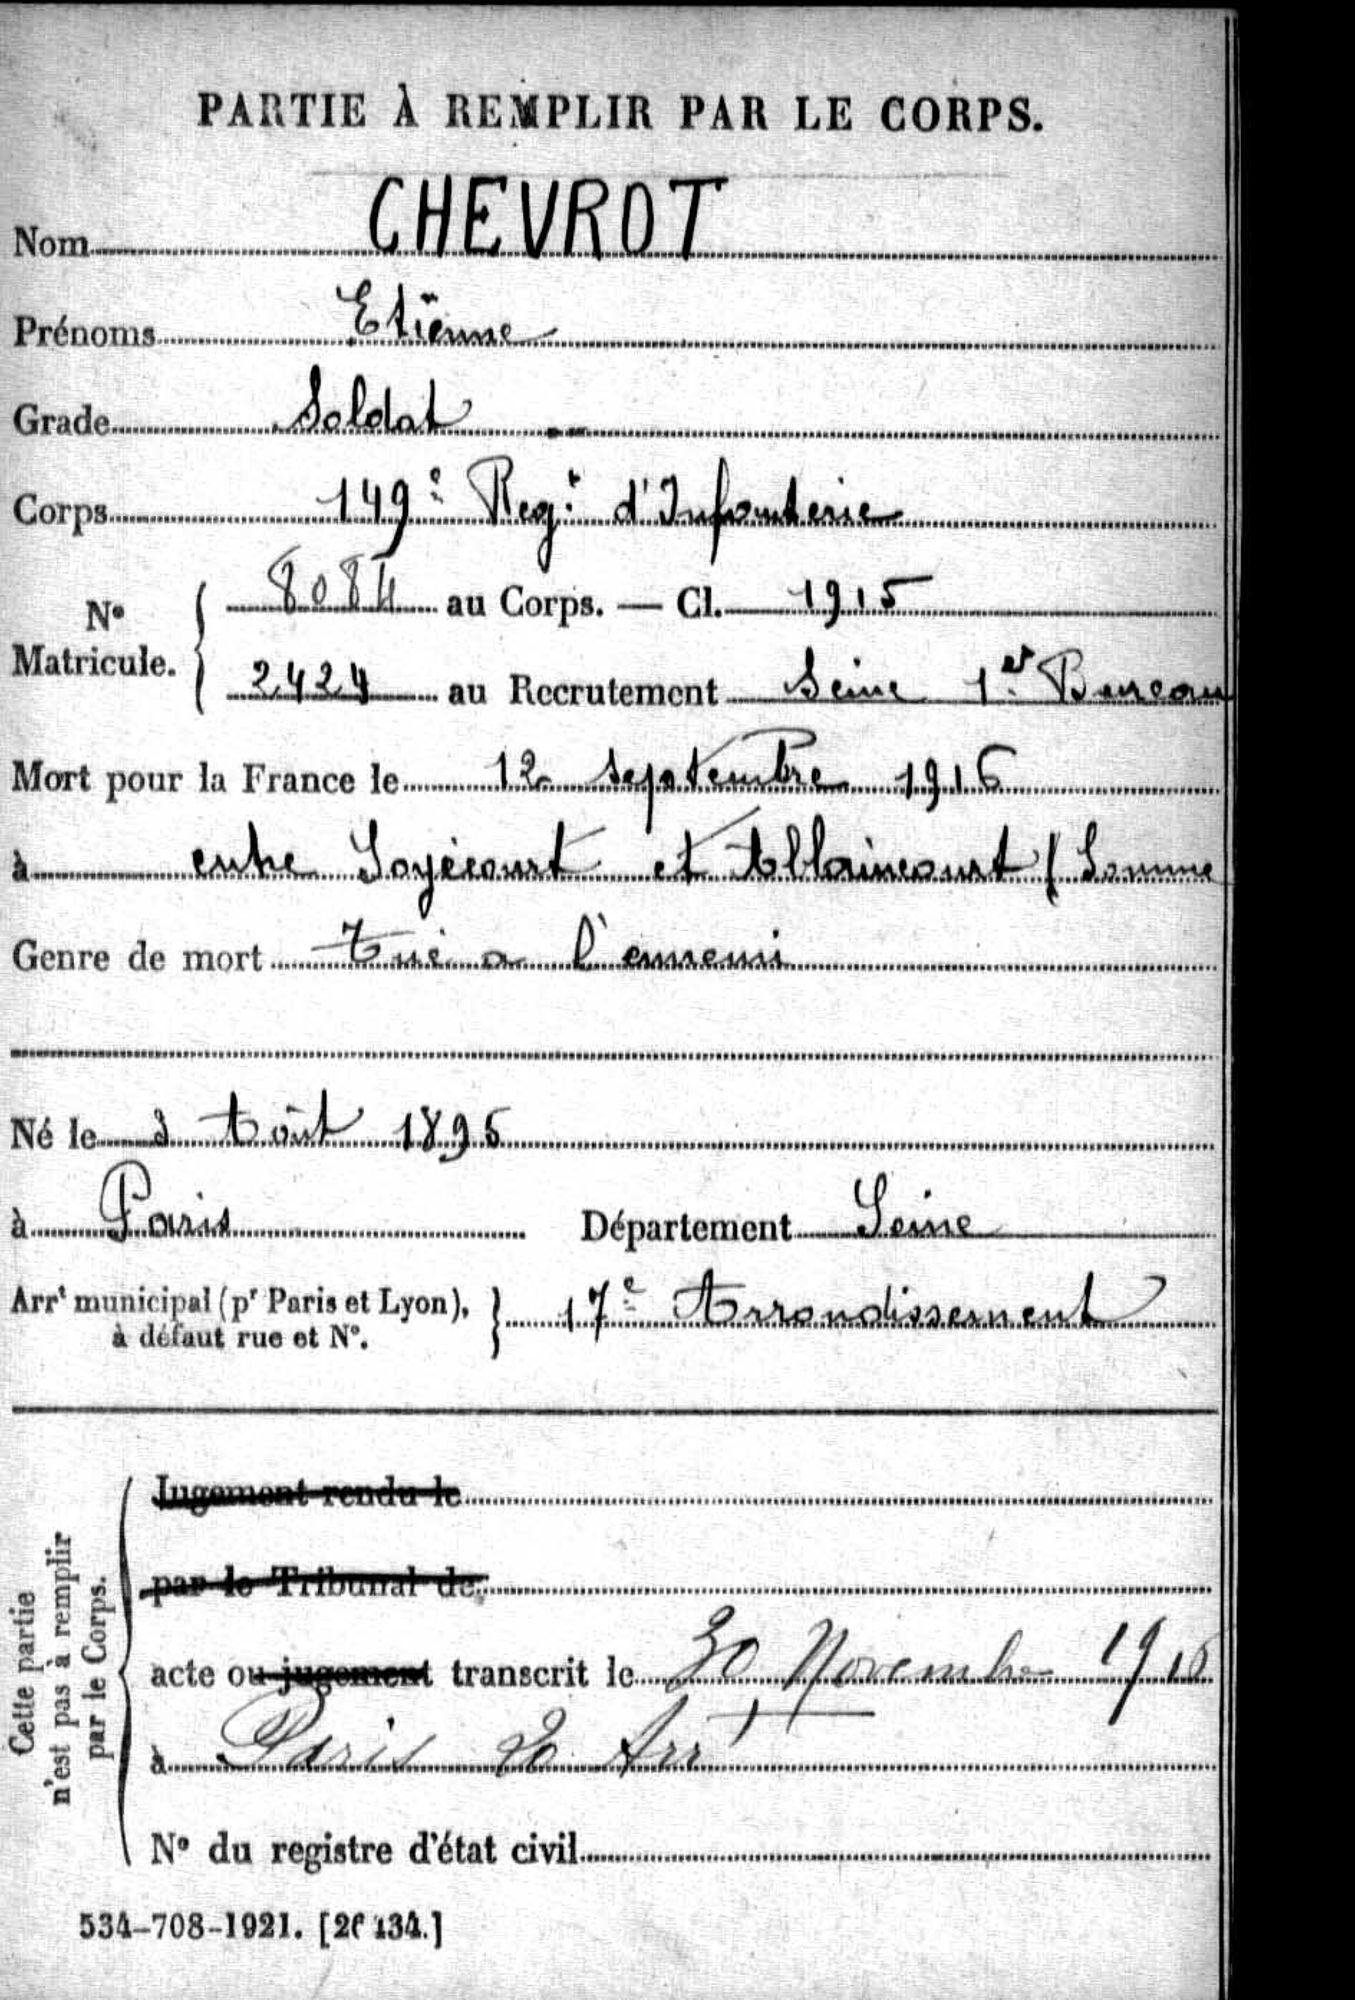 PARTIE À REMPLIR PAR LE CORPS.
Nom CHEVROT
Prénoms Etienne
Grade Soldat
Corps 149e Regt d'Infanterie
N° Matricule. { 8084 au Corps. — Cl. 1915
2424 au Recrutement Seine 1er Bureau
Mort pour la France le 12 septembre 1916
à entre Soyécourt et Ablaincourt (Somme
Genre de mort Tué a l'ennemi
Né le 3 Août 1895
à Paris Département Seine
Arrt municipal (pr Paris et Lyon), à défaut rue et N°. } 17e Arrondissement
Cette partie n'est pas à remplir par le Corps.
Jugement rendu le
par le Tribunal de
acte ou jugement transcrit le 30 Novembre 1916
à Paris 20 Arrt
N° du registre d'état civil
534-708-1921. [26434.]